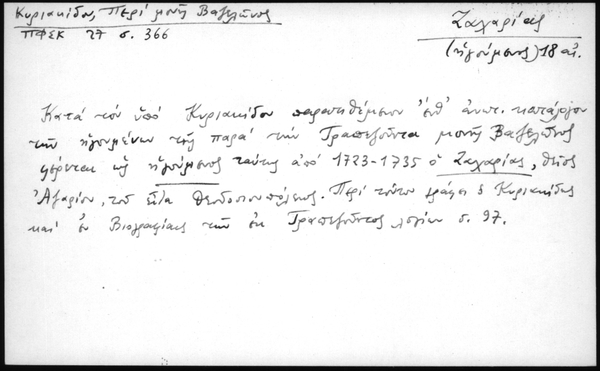 Κυριακίδου, Περί μονής Βαζελῶνος
ΠΦΣΚ 27 σ. 366
Ζαχαρίας
(ἡγούμενος) 18 αἰ.
Κατά τόν ὑπό Κυριακίδου παρατιθέμενον ἐνθ' ἀνωτ. κατάλογον
τῶν ἡγουμένων τῆς παρά τήν Τραπεζοῦντα μονῆς Βαζελῶνος
φέρεται ὡς ἡγούμενος ταύτης ἀπό 1723-1735 ὁ Ζαχαρίας, θεῖος
τοῦ εἶτα Θεοδοσιουπόλεως. Περί τούτου γράφει ὁ Κυριακίδης
καί ἐν Βιογραφίαις τῶν ἐκ Τραπεζοῦντος λογίων σ. 97.